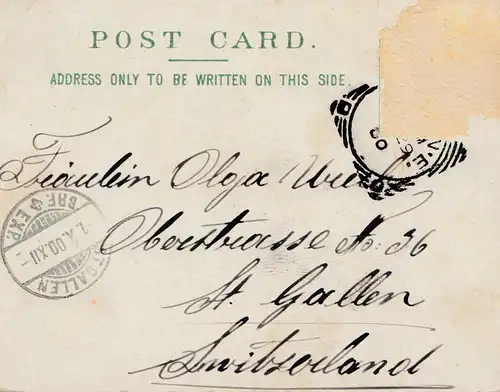 POST CARD.
ADDRESS ONLY TO BE WRITTEN ON THIS SIDE.
Fräulein Olga
Oberstrasse No. 36
St. Gallen
Switzerland
ST. GALLEN
BRF. EXP.